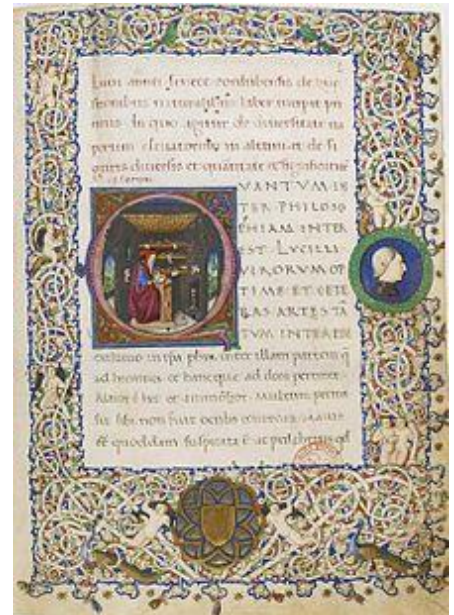 Lucii annei senece cordubensis de que
stionibus naturalibus liber incipit pri
mus. In quo agitur de diversitate va
porum elevatorum in altum et de fi
guris diversis et quantitate et
QVANTVM IN
TER PHILOSO
PHIAM INTER
EST LVCILI
VIRORVM OP
TIME ET CETE
RAS ARTES TĀ
TVM INTERESSE
existimo in ipsa inter illam partem q
ad homines et hanc que ad deos pertinet.
Altior ē hec et animosior. Multum permi
sit sibi non fuit oculis contenta maius
eē quoddam suspicata ē ac pulchrius qd